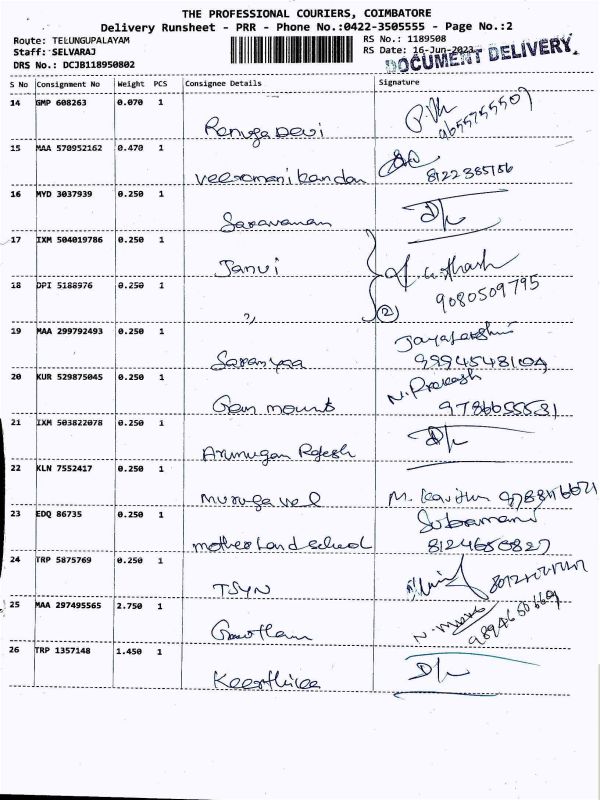 THE PROFESSIONAL COURIERS, COIMBATORE
Delivery Runsheet - PRR - Phone No.:0422-3505555 - Page No.:2
Route: TELUNGUPALAYAM RS No.: 1189508
Staff: SELVARAJ RS Date: 16-Jun-2023
DRS No.: DCJB118950802 DOCUMENT DELIVERY
S No Consignment No Weight PCS Consignee Details Signature
14 GMP 608263 0.070 1
Renuga Devi 9655755507
15 MAA 570952162 0.470 1
veeramani kandan 8122385156
16 MYD 3037939 0.250 1
Saravanan D/r
17 IXM 504019786 0.250 1
Janvi
18 DPI 5188976 0.250 1
" 9080509795
2
19 MAA 299792493 0.250 1 Jayalakshmi
Saranyaa 9994548104
20 KUR 529875045 0.250 1 N. Prakash
Gem mount 9786655581
21 IXM 503822078 0.250 1 D/r
Arumugam Rajesh
22 KLN 7552417 0.250 1
murugavel M. Kavitha
23 EDQ 86735 0.250 1 Subramani
motherland school 8124650827
24 TRP 5875769 0.250 1
TSYN
25 MAA 297495565 2.750 1
Gowtham
26 TRP 1357148 1.450 1 D/r
Keerthika